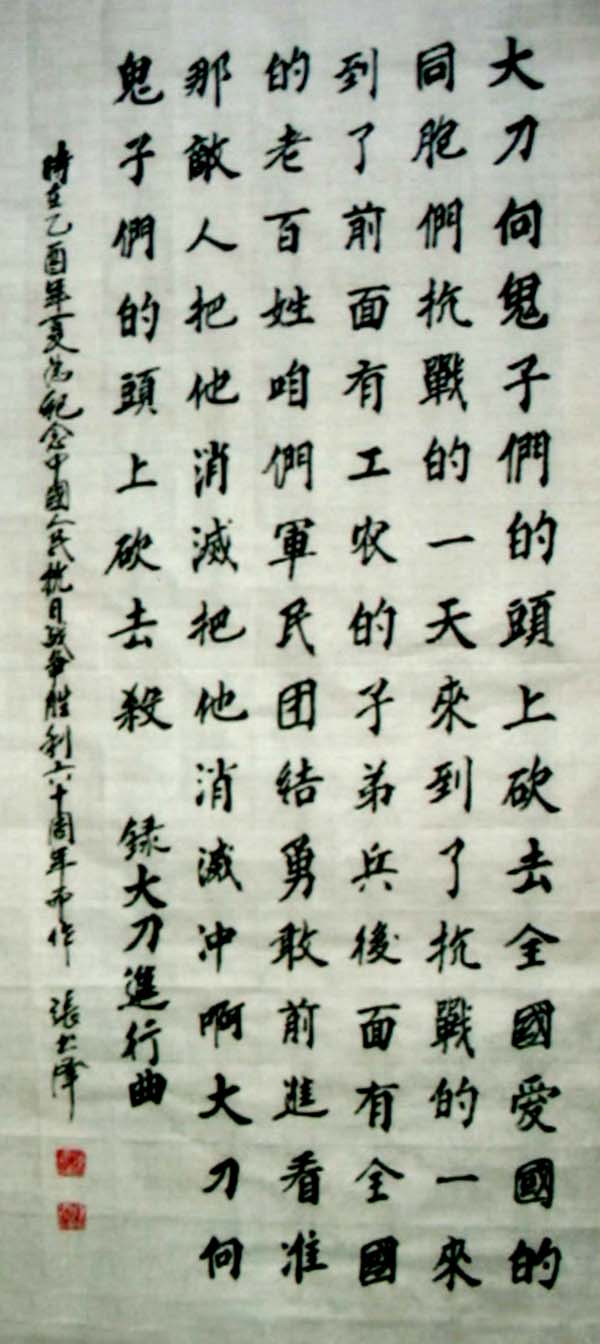 大刀向鬼子們的頭上砍去全國愛國的
同胞們抗戰的一天來到了抗戰的一來
到了前面有工农的子弟兵後面有全國
的老百姓咱們軍民团結勇敢前進看准
那敵人把他消滅把他消滅冲啊大刀向
鬼子們的頭上砍去殺 録大刀進行曲
時在乙酉年夏为紀念中國人民抗日战争胜利六十周年而作 張